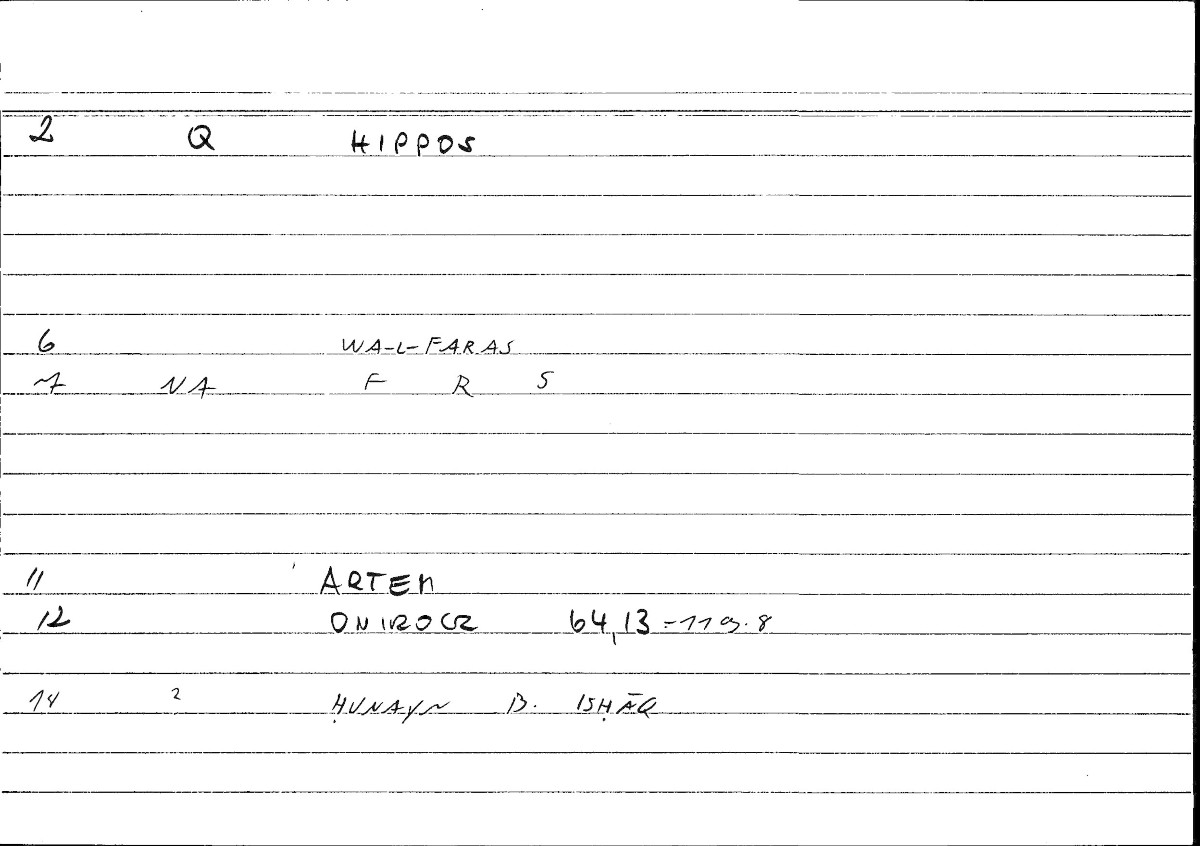 2 Q HIPPOS
6 WA-L-FARAS
7 NA F R S
11 ARTEM
12 ONIROCR 64,13 = 119.8
14 2 ḤUNAYN B. ISḤĀQ